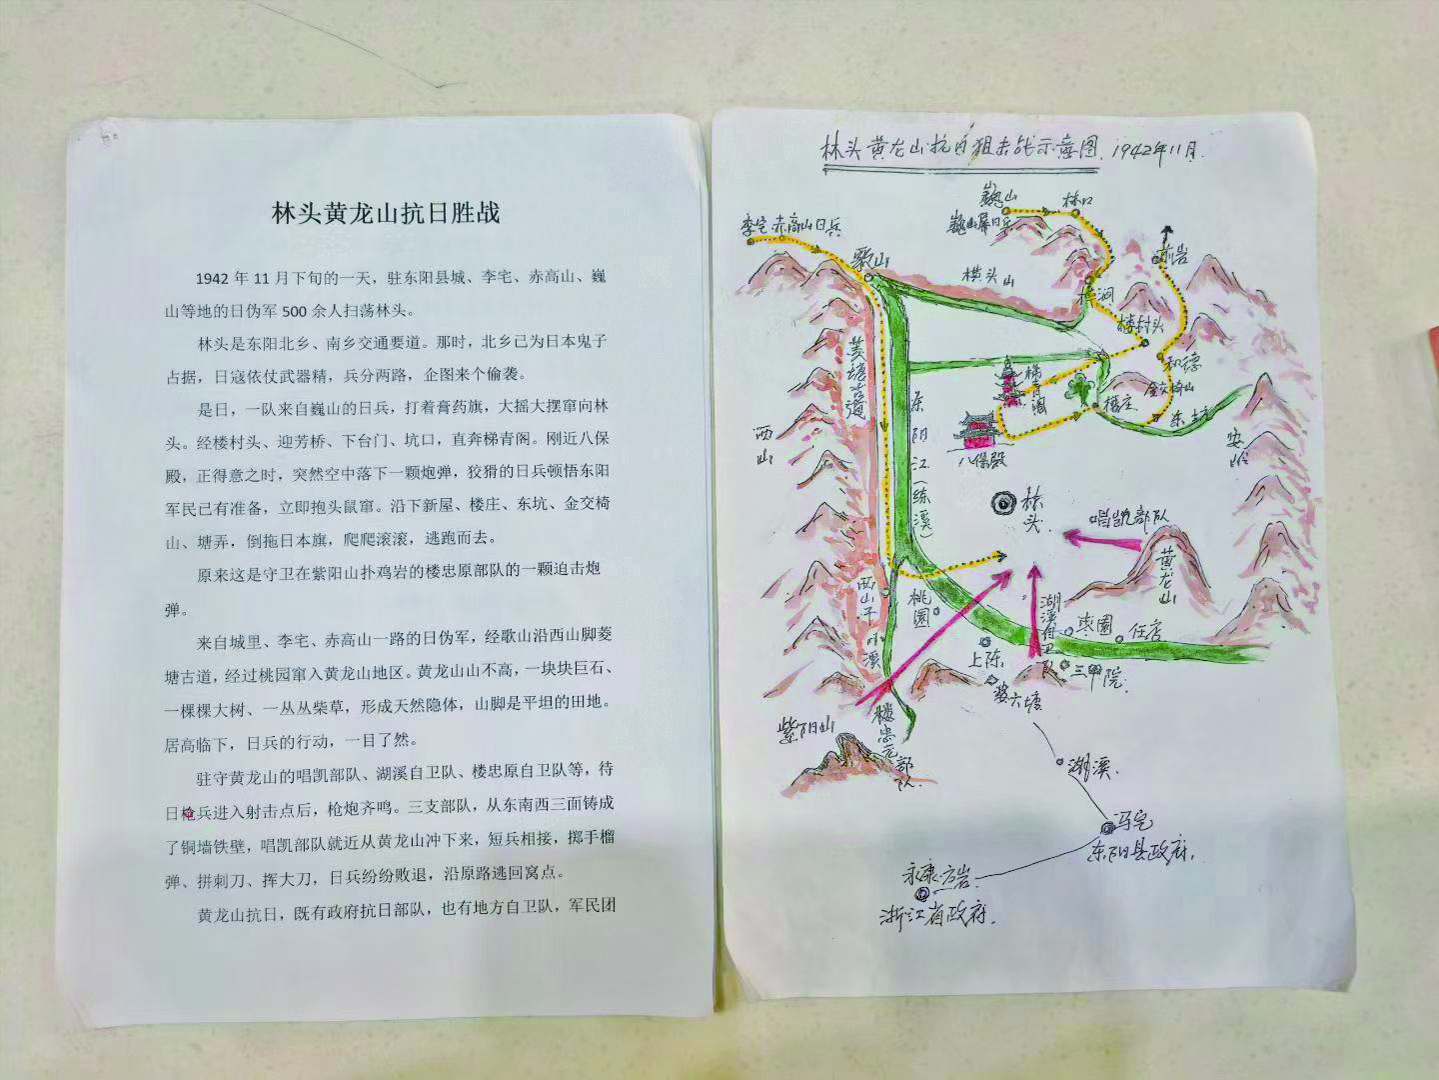 林头黄龙山抗日胜战
1942 年 11 月下旬的一天，驻东阳县城、李宅、赤高山、巍
山等地的日伪军 500 余人扫荡林头。
林头是东阳北乡、南乡交通要道。那时，北乡己为日本鬼子
占据，日寇依仗武器精，兵分两路，企图来个偷袭。
是日，一队来自巍山的日兵，打着膏药旗，大摇大摆窜向林
头。经楼村头、迎芳桥、下台门、坑口，直奔梯青阁。刚近八保
殿，正得意之时，突然空中落下一颗炮弹，狡猾的日兵顿悟东阳
军民已有准备，立即抱头鼠窜。沿下新屋、楼庄、东坑、金交椅
山、塘弄，倒拖日本旗，爬爬滚滚，逃跑而去。
原来这是守卫在紫阳山扑鸡岩的楼忠原部队的一颗迫击炮
弹。
来自城里、李宅、赤高山一路的日伪军，经歌山沿西山脚菱
塘古道，经过桃园窜入黄龙山地区。黄龙山山不高，一块块巨石、
一棵棵大树、一丛丛柴草，形成天然隐体，山脚是平坦的田地。
居高临下，日兵的行动，一目了然。
驻守黄龙山的唱凯部队、湖溪自卫队、楼忠原自卫队等，待
日枪兵进入射击点后，枪炮齐鸣。三支部队，从东南西三面铸成
了铜墙铁壁，唱凯部队就近从黄龙山冲下来，短兵相接，掷手榴
弹、拼刺刀、挥大刀，日兵纷纷败退，沿原路逃回窝点。
黄龙山抗日，既有政府抗日部队，也有地方自卫队，军民团
林头黄龙山抗日狙击战示意图 1942年11月
巍山
林口
李宅 赤高山日兵
歌山
横头山
前岩
楼村头
和德
金交椅山
菱塘古道
梯青阁
楼庄
东
西山
东阳江（练溪）
八保殿
林头
唱凯部队
黄龙山
西山下
桃園
小溪
湖溪自卫队
枣園
任店
上陈
三甲院
紫阳山
楼忠元部队
湖溪
冯宅
东阳县政府
永康方岩
浙江省政府